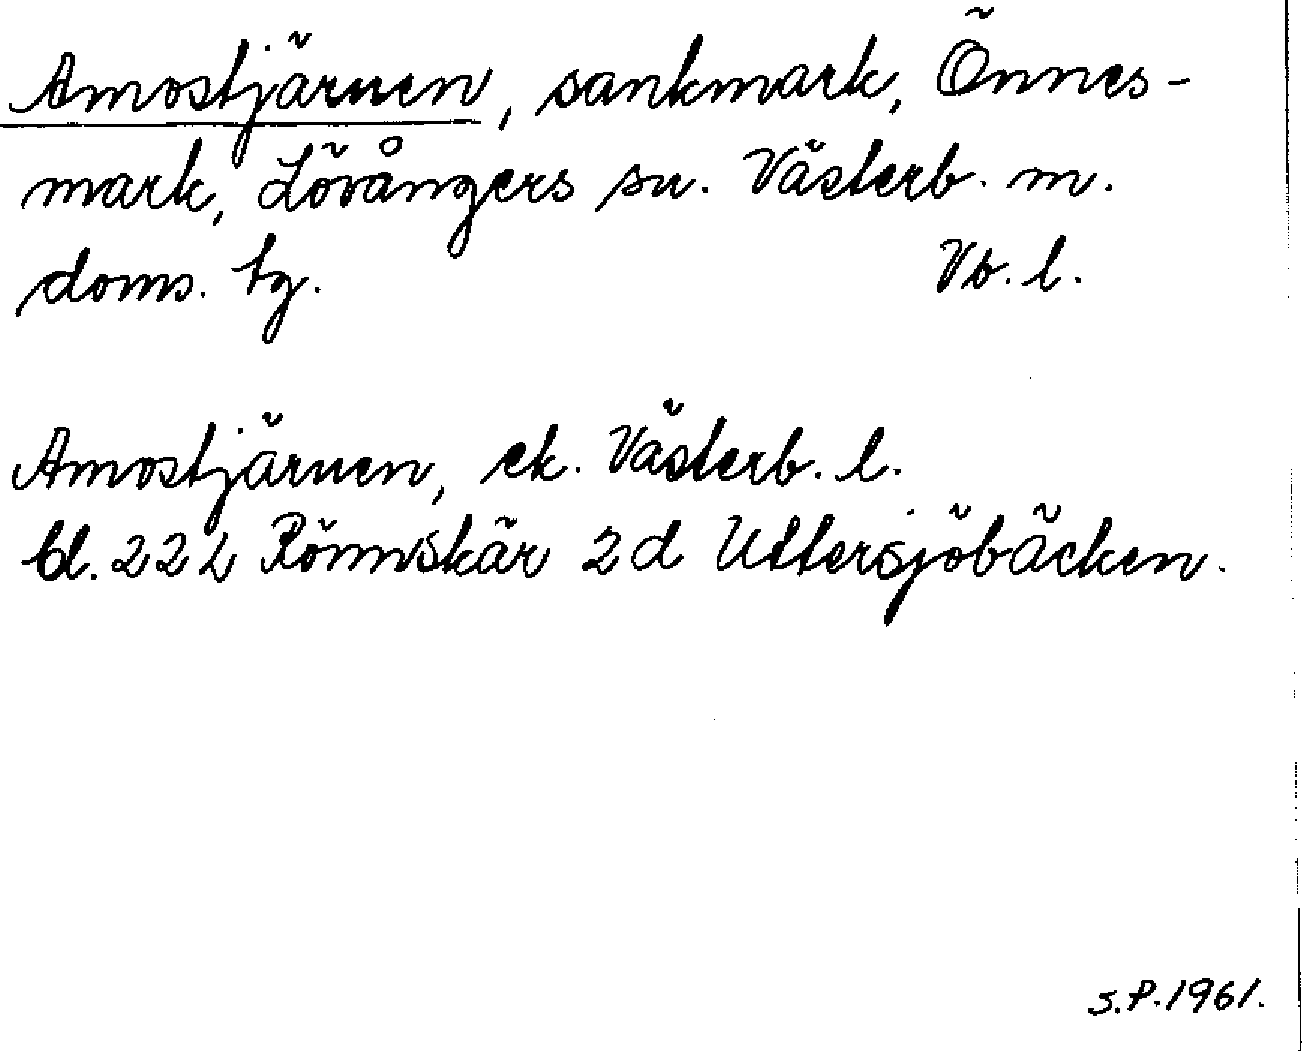 Amostjärnen, sankmark, Önnes-
mark, Lövångers sn. Västerb. m.
doms. tg. Vb. l.
Amostjärnen, ek. Västerb. l.
bl. 22 L Rönnskär 2d Uttersjöbäcken.
S.P. 1961.